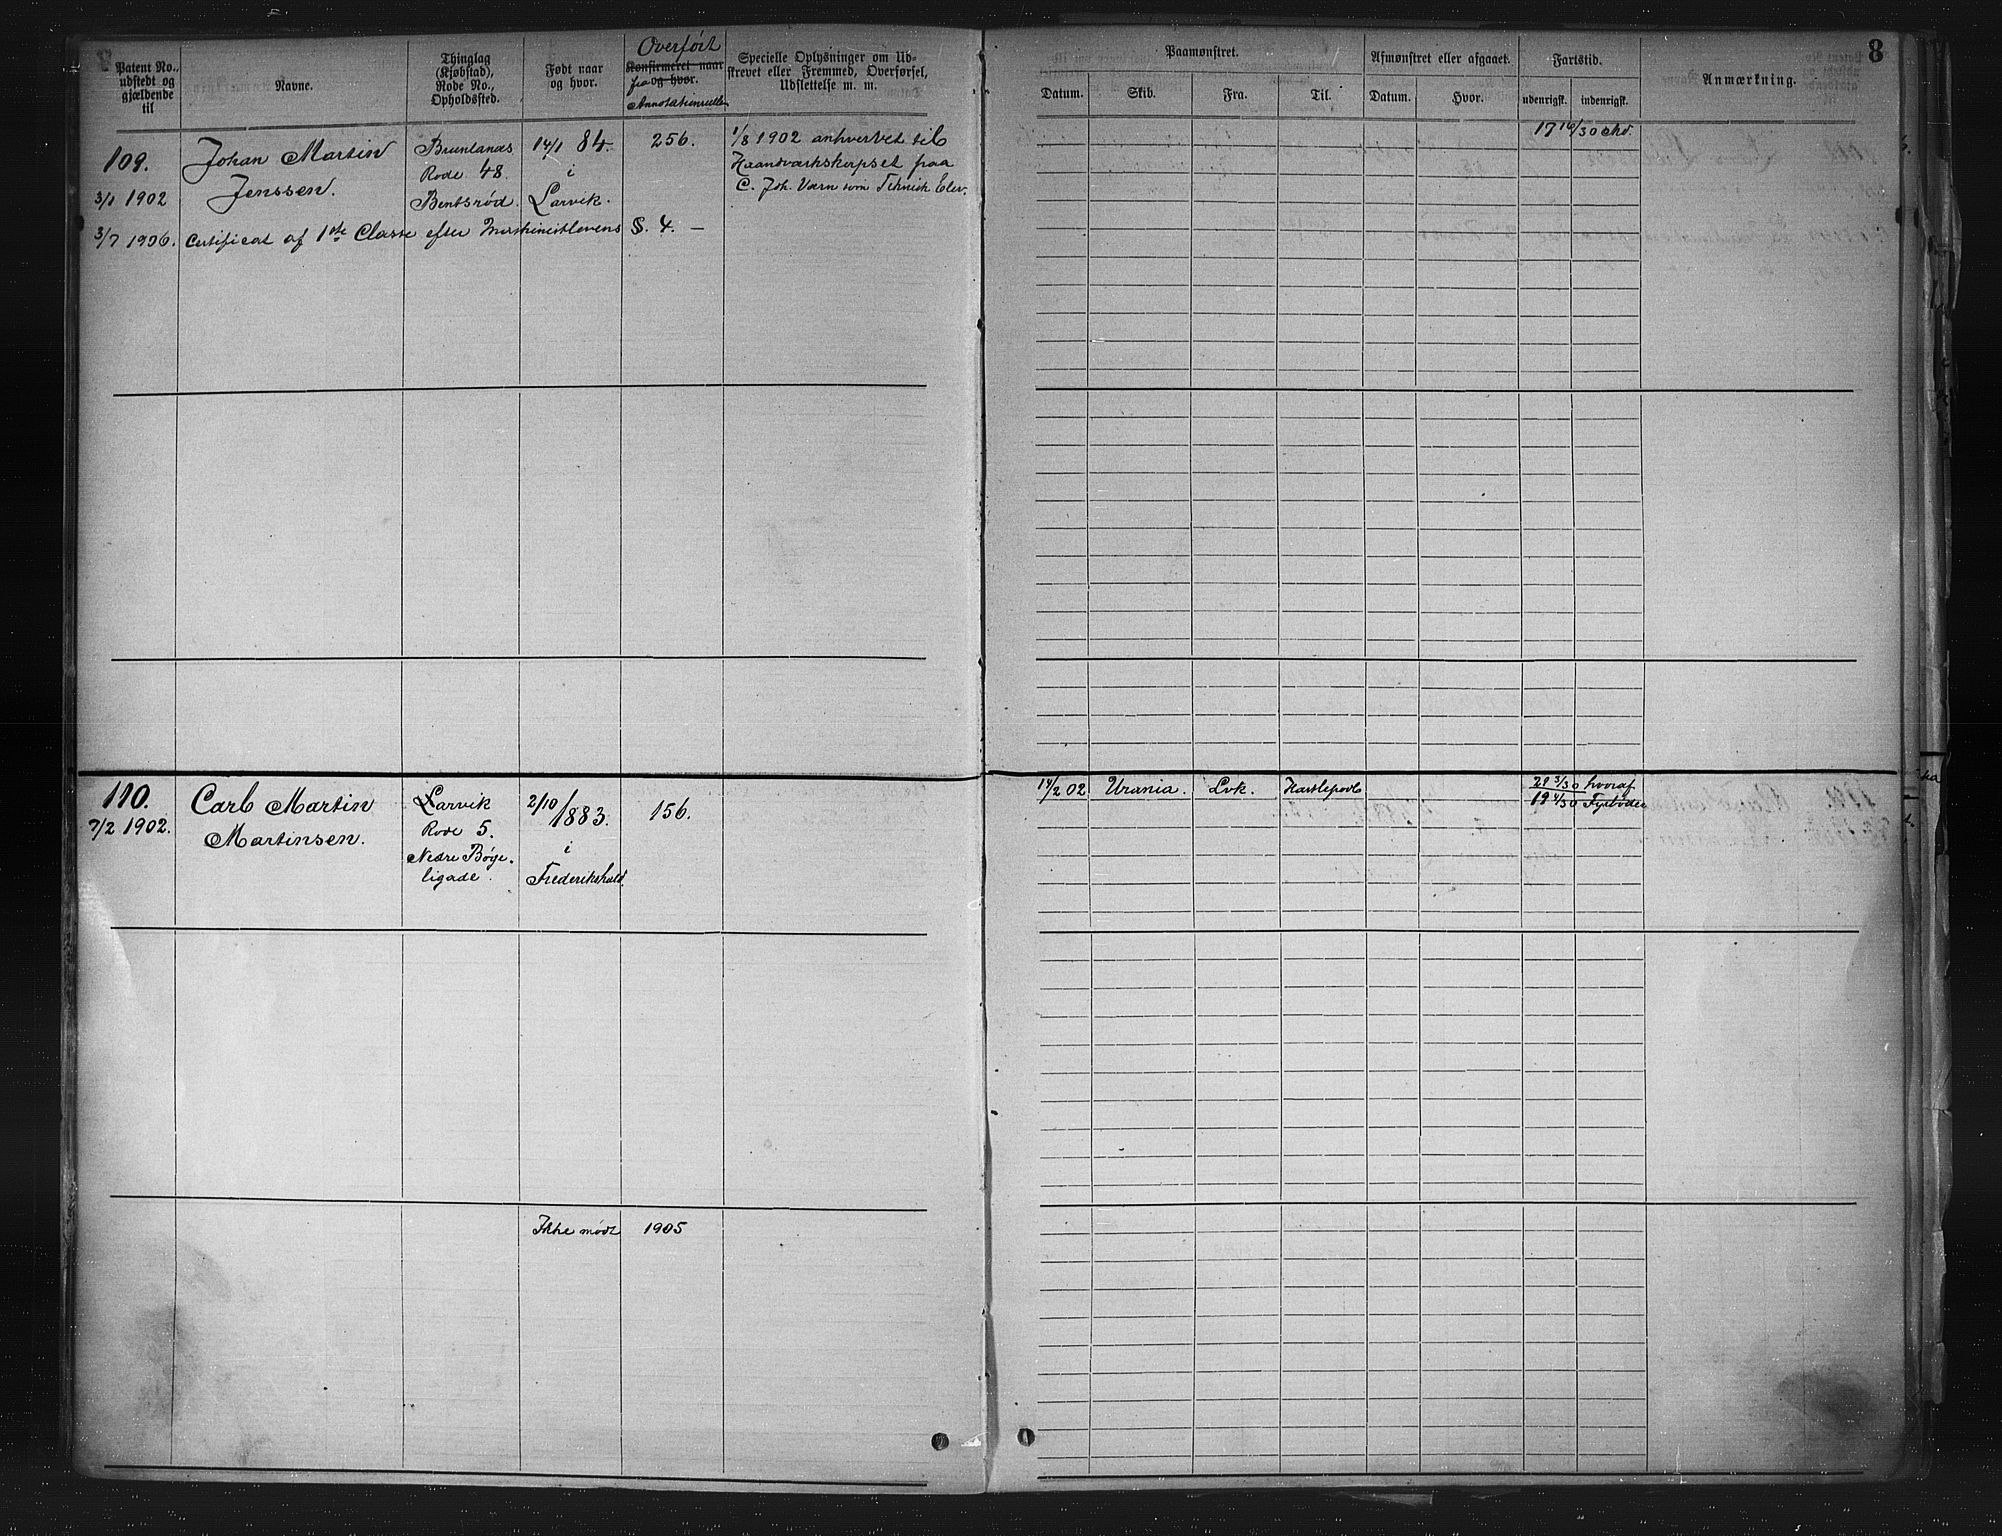 Patent No., udstedt og gjældende til
Navne.
Thinglag (Kjøbstad), Rode No., Opholdssted.
Født naar og hvor.
Overført
Konfirmeret naar og hvor.
fra
Annotationsrullen
Specielle Oplysninger om Udstrevet eller Fremmed, Overførsel, Udslettelse m. m.
109.
3/1 1902
Johan Martin
Jenssen.
Brunlanæs
Rode 48.
Bentsrød.
14/1 84.
i
Larvik.
256.
1/8 1902 anhvervet til
Haandværkskorpset paa
C. Joh. Værn som Teknisk Elev.
3/7 1906. Certificat af 1ste Classe efter Maskinistlovens §. 4. —
110.
7/2 1902.
Carl Martin
Martinsen.
Larvik
Rode 5.
Nedre Bøge-
ligade.
2/10 1883.
i
Frederikshald.
156.
Ikke mødt 1905
8
Paamønstret.
Afmønstret eller afgaaet.
Fartstid.
Anmærkning.
Datum.
Skib.
Fra.
Til.
Datum.
Hvor.
udenrigsk.
indenrigsk.
17 16/30 Md.
14/2 02
Urania.
Lvk.
Hartlepool
21 3/30 hvoraf
19 4/30 Fyrbøder